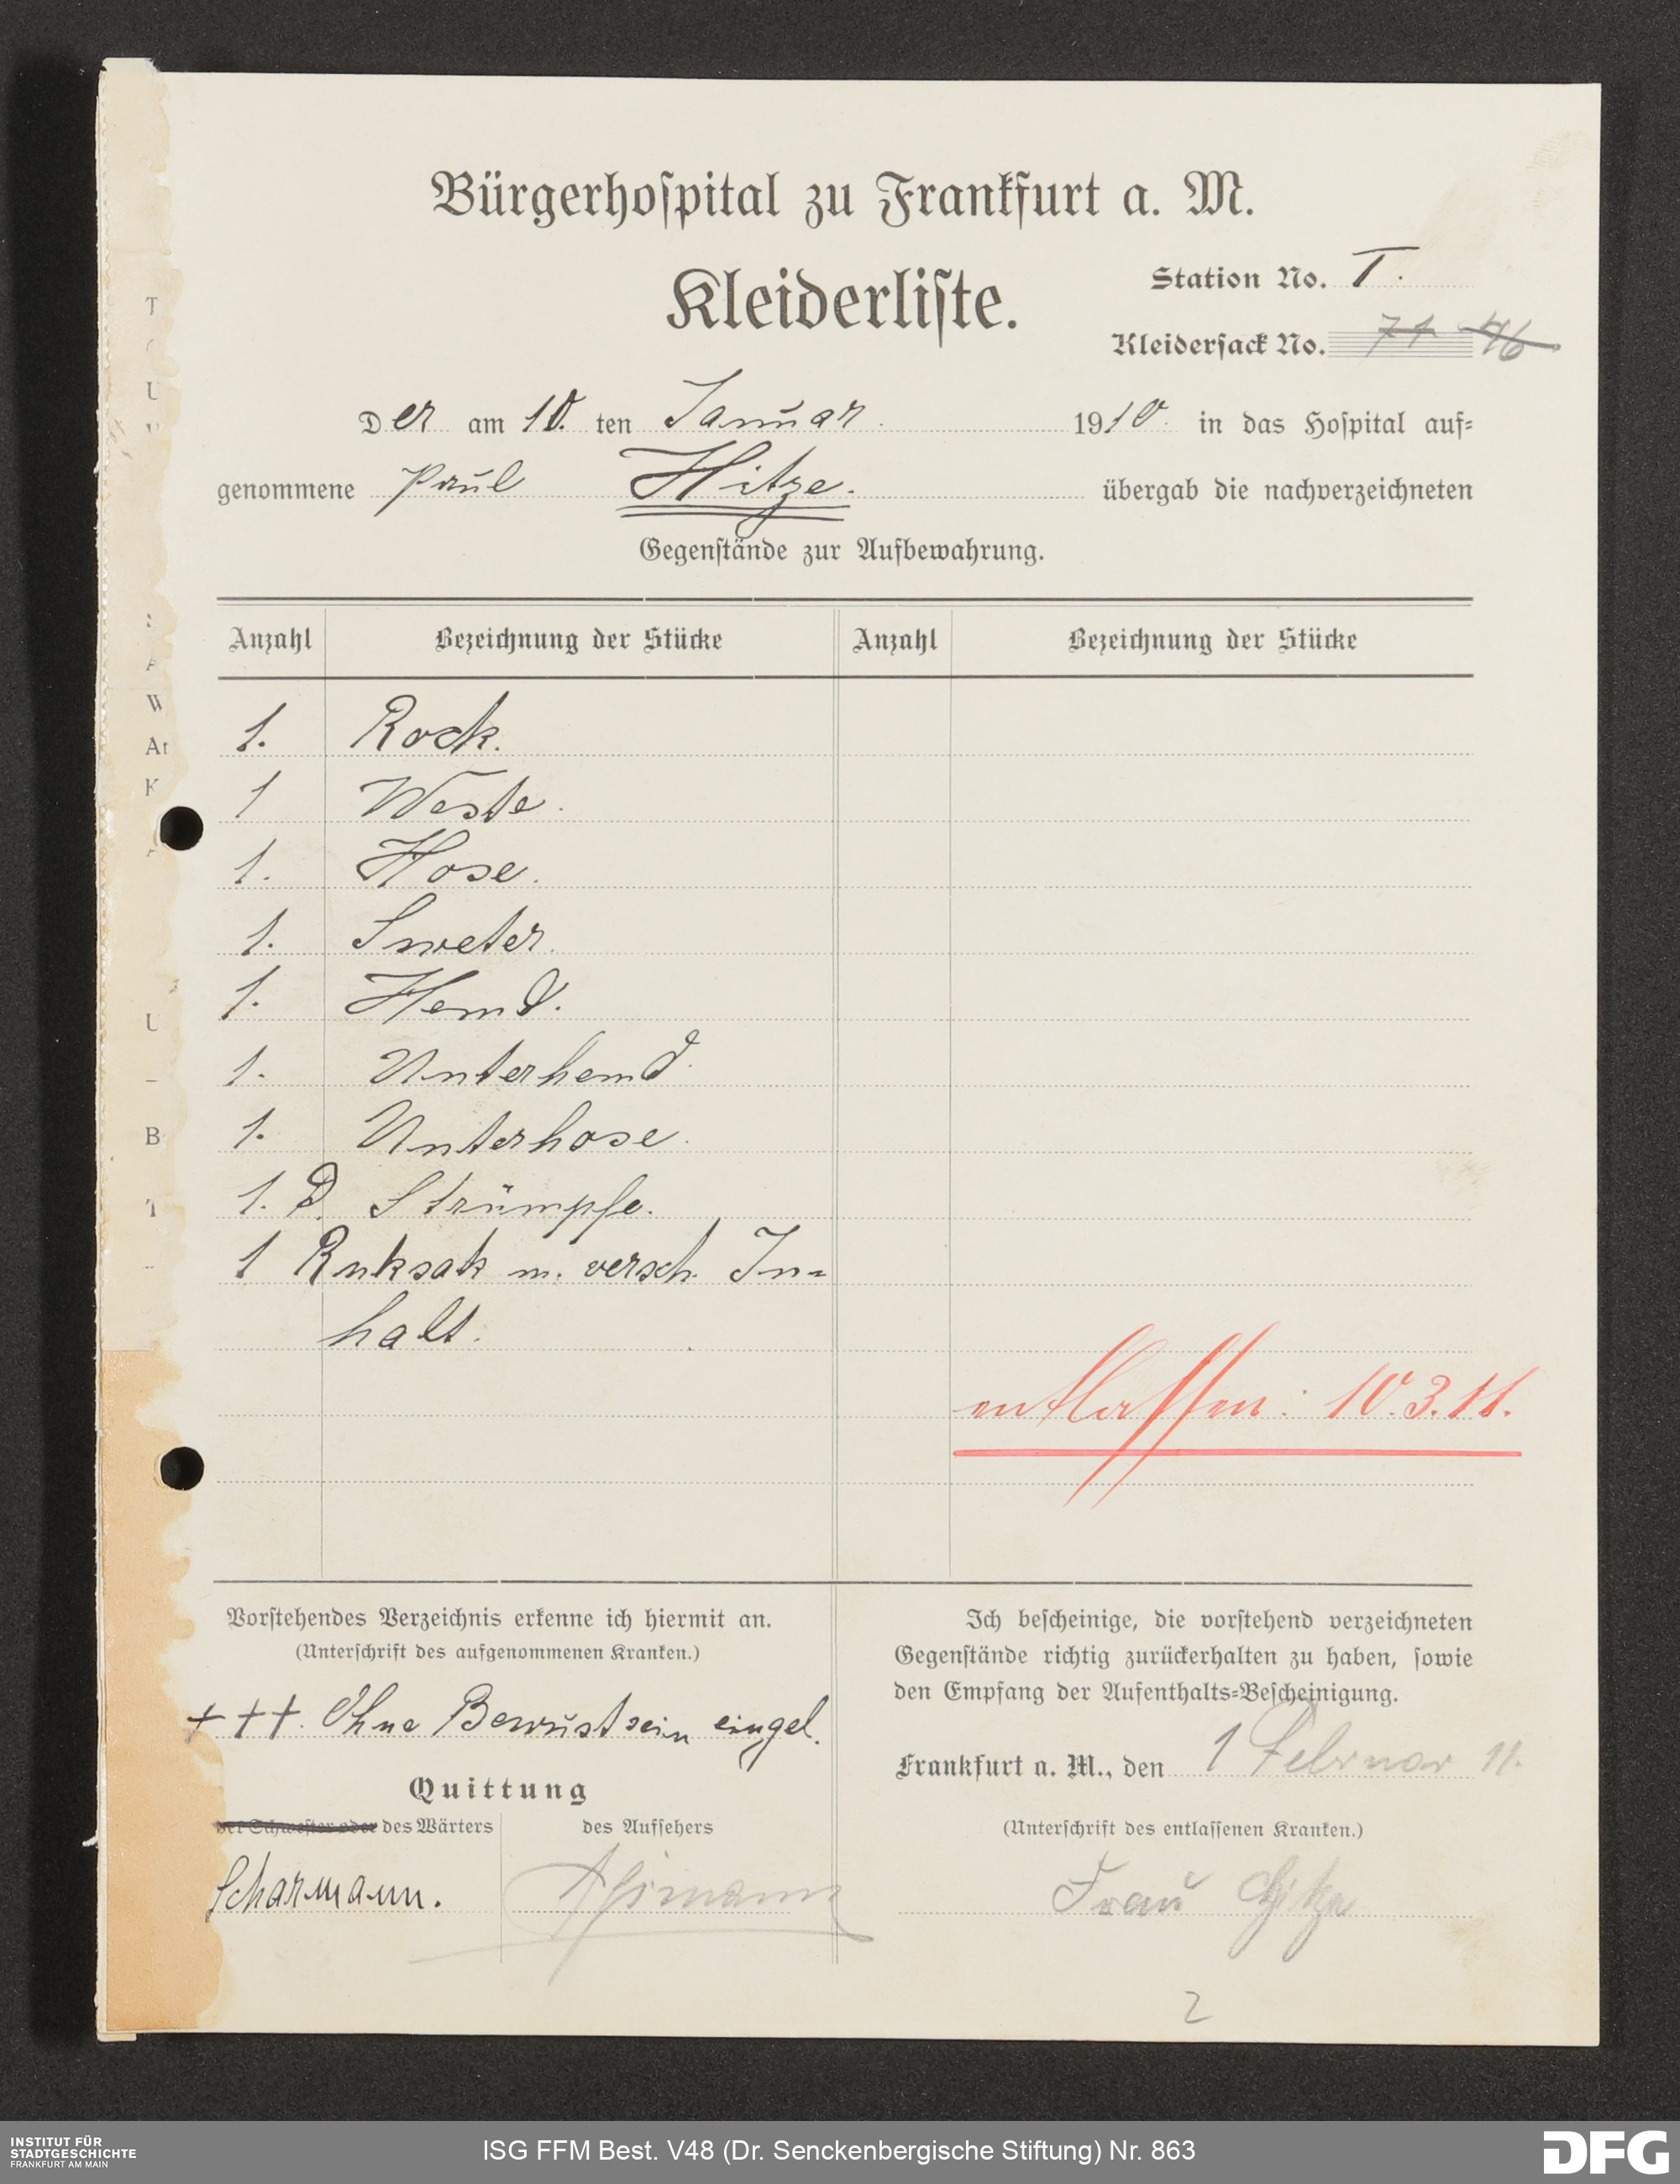 Bürgerhoſpital zu Frankfurt a. M.
Kleiderliſte.
Station No. I.
Kleiderſack No. 71 46
Der am 10. ten Januar 1910. in das Hoſpital auf⸗
genommene Paul Hitze. übergab die nachverzeichneten
Gegenſtände zur Aufbewahrung.
Anzahl Bezeichnung der Stücke Anzahl Bezeichnung der Stücke
1. Rock.
1 Weste.
1. Hose.
1. Sweter.
1. Hemd.
1. Unterhemd.
1. Unterhose.
1. P. Strümpfe.
1 Ruksak m. versch. In-
halt.
entlassen: 10.3.11.
Vorſtehendes Verzeichnis erkenne ich hiermit an.
(Unterſchrift des aufgenommenen Kranken.)
+++. Ohne Bewustsein eingel.
Quittung
der Schweſter oder des Wärters des Auffehers
Scharmann.
Ich beſcheinige, die vorſtehend verzeichneten
Gegenſtände richtig zurückerhalten zu haben, ſowie
den Empfang der Aufenthalts⸗Beſcheinigung.
Frankfurt a. M., den 1 Februar 11.
(Unterſchrift des entlaſſenen Kranken.)
Frau Hitze
2
INSTITUT FÜR
STADTGESCHICHTE
FRANKFURT AM MAIN
ISG FFM Best. V48 (Dr. Senckenbergische Stiftung) Nr. 863
DFG